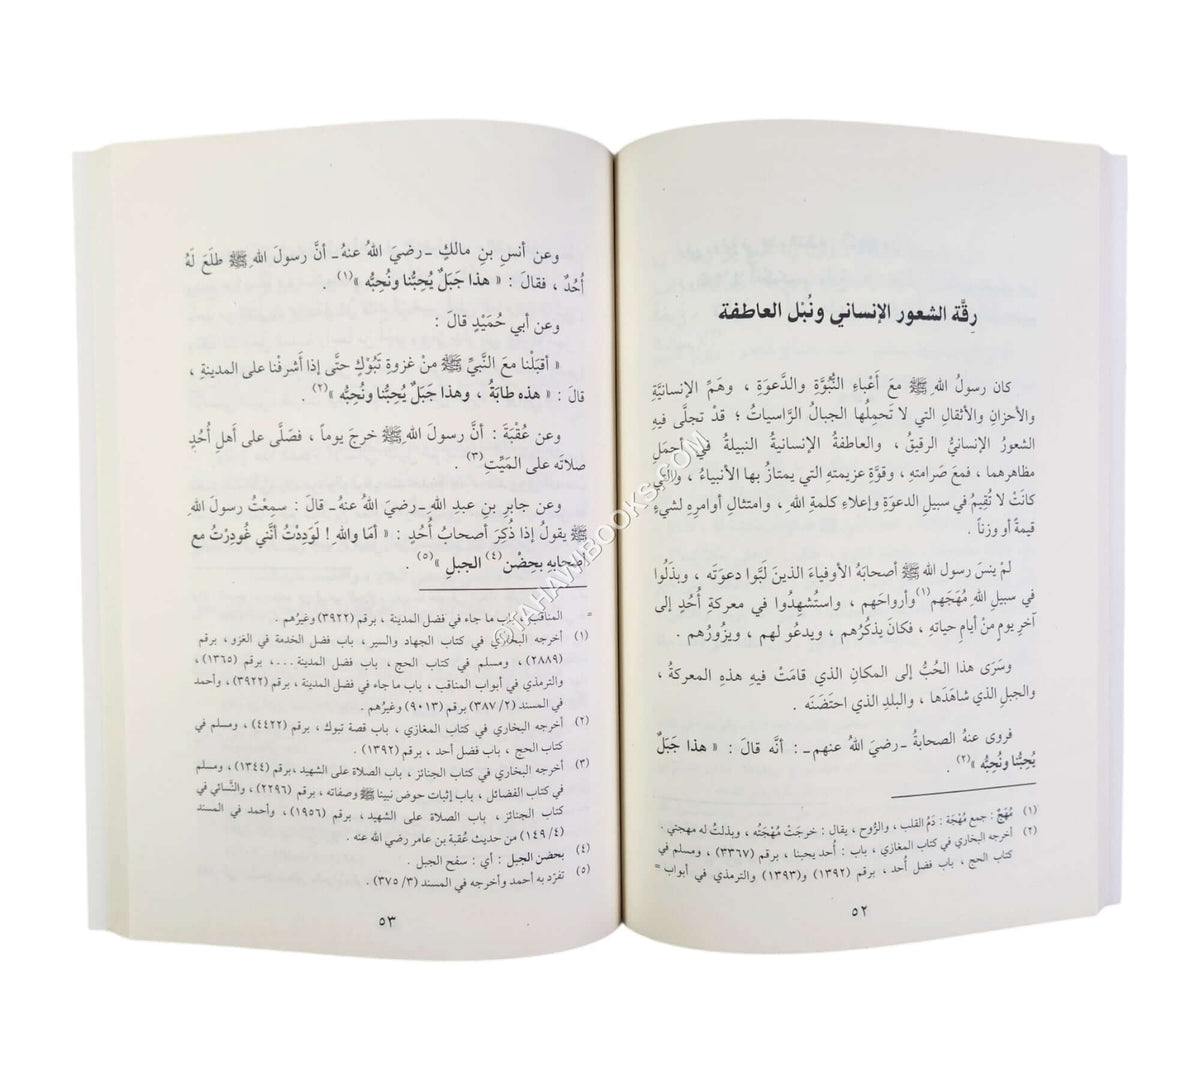 رِقَّة الشعور الإنساني ونُبْل العاطفة
كان رسولُ اللهِ ﷺ معَ أَعْباءِ النُّبُوَّةِ والدَّعوَةِ ، وهَمِّ الإنسانيَّةِ
والأحزانِ والأثقالِ التي لا تَحمِلُها الجبالُ الرَّاسياتُ ؛ قدْ تجلَّى فيهِ
الشعورُ الإنسانيُّ الرقيقُ ، والعاطفةُ الإنسانيةُ النبيلةُ في أجمَلِ
مظاهرهما ، فمعَ صَرامتهِ ، وقوَّةِ عزيمتهِ التي يمتازُ بها الأنبياءُ ، والتي
كانَتْ لا تُقِيمُ في سبيلِ الدعوَةِ وإعلاءِ كلمةِ اللهِ ، وامتثالِ أوامرِه لشيءٍ
قيمةً أو وزناً .
لمْ ينسَ رسول الله ﷺ أصحابَهُ الأوفياءَ الذينَ لَبَّوا دعوَتَه ، وبذَلُوا
في سبيلِ اللهِ مُهَجَهم(١)وأرواحَهم ، واستُشهِدُوا في معركةِ أُحُدٍ إلى
آخرِ يومٍ منْ أيامِ حياتهِ ، فكانَ يذكُرُهم ، ويدعُو لهم ، ويزُورُهم .
وسَرَى هذا الحُبُّ إلى المكانِ الذي قامَتْ فيهِ هذهِ المعركةُ ،
والجبلِ الذي شاهَدَها ، والبلدِ الذي احتَضَنَه .
فروى عنهُ الصحابةُ ـ رضيَ اللهُ عنهم ـ : أنَّه قالَ : « هذا جَبَلٌ
يُحِبُّنا ونُحِبُّه »(٢) .
(١) مُهَجٌ : جمع مُهْجَة : دَمُ القلب ، والرُّوح ، يقال : خرجَتْ مُهْجَتُه ، وبذلتُ له مهجتي .
(٢) أخرجه البخاري في كتاب المغازي ، باب : أُحد يحبنا ، برقم (٣٣٦٧) ، ومسلم في
كتاب الحج ، باب فضل أُحد ، برقم (١٣٩٢) و(١٣٩٣) والترمذي في أبواب =
٥٢
وعن أنسِ بنِ مالكٍ ـ رضيَ اللهُ عنهُ ـ أنَّ رسولَ اللهِ ﷺ طلَعَ لَهُ
أُحُدٌ ، فقالَ : « هذا جَبَلٌ يُحِبُّنا ونُحِبُّه »(١) .
وعن أبي حُمَيْدٍ قالَ :
« أقبَلْنا معَ النَّبيِّ ﷺ منْ غزوةِ تَبُوْكَ حتَّى إذا أَشرفْنا على المدينةِ ،
قالَ : « هذه طابَةُ ، وهذا جَبَلٌ يُحِبُّنا ونُحِبُّه »(٢) .
وعن عُقْبَةَ : أنَّ رسولَ اللهِ ﷺ خرجَ يوماً ، فصَلَّى على أهلِ أُحُدٍ
صلاتَه على المَيِّتِ(٣) .
وعن جابرِ بنِ عبدِ اللهِ ـ رضيَ اللهُ عنهُ ـ قالَ : سمِعْتُ رسولَ اللهِ
ﷺ يقولُ إذا ذُكِرَ أصحابُ أُحُدٍ : « أمَا واللهِ ! لَوَدِدْتُ أنَّني غُودِرْتُ مع
أصحابِه بحِضْنِ(٤) الجبلِ »(٥) .
= المناقب ، باب ما جاء في فضل المدينة ، برقم (٣٩٢٢) وغيرُهم .
(١) أخرجه البخاري في كتاب الجهاد والسير ، باب فضل الخدمة في الغزو ، برقم
(٢٨٨٩) ، ومسلم في كتاب الحج ، باب فضل المدينة . . . ، برقم (١٣٦٥) ،
والترمذي في أبواب المناقب ، باب ما جاء في فضل المدينة ، برقم (٣٩٢٢) ، وأحمد
في المسند (٢/ ٣٨٧) برقم (٩٠١٣) وغيرُهم .
(٢) أخرجه البخاري في كتاب المغازي ، باب قصة تبوك ، برقم (٤٤٢٢) ، ومسلم في
كتاب الحج ، باب فضل أحد ، برقم (١٣٩٢) .
(٣) أخرجه البخاري في كتاب الجنائز ، باب الصلاة على الشهيد ،برقم (١٣٤٤) ، ومسلم
في كتاب الفضائل ، باب إثبات حوض نبينا ﷺ وصفاته ، برقم (٢٢٩٦) ، والنَّسائي في
كتاب الجنائز ، باب الصلاة على الشهيد ، برقم (١٩٥٦) ، وأحمد في المسند
(٤/ ١٤٩) من حديث عُقبة بن عامر رضي الله عنه .
(٤) بحضن الجبل : أي : سفح الجبل .
(٥) تفرّد به أحمد وأخرجه في المسند (٣/ ٣٧٥) .
٥٣
©TAHAWIBOOKS.COM